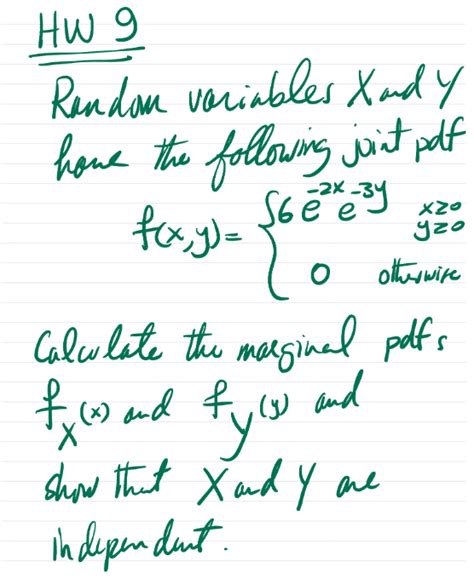 HW 9
Random variables X and Y
have the following joint pdf
f(x,y) = { 6 e^{-2x} e^{-3y} x≥0
y≥0
0 otherwise
Calculate the marginal pdfs
f_X(x) and f_Y(y) and
show that X and Y are
independent.